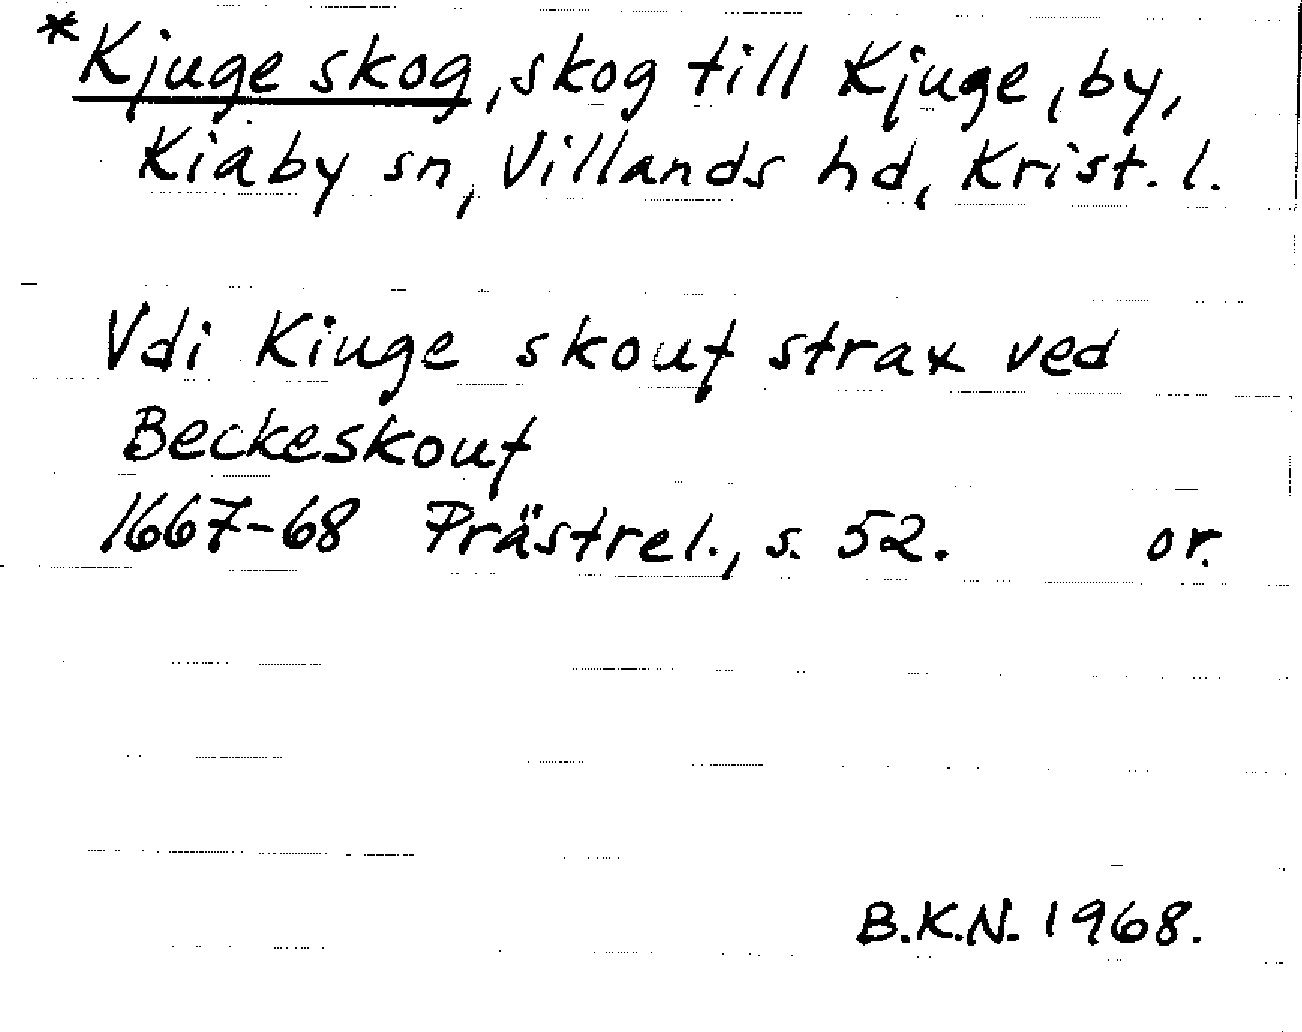 *Kjuge skog, skog till Kjuge, by,
Kiaby sn, Villands hd, Krist. l.
Vdi Kiuge skouf strax ved
Beckeskouf
1667-68 Prästrel., s. 52. or.
B.K.N. 1968.